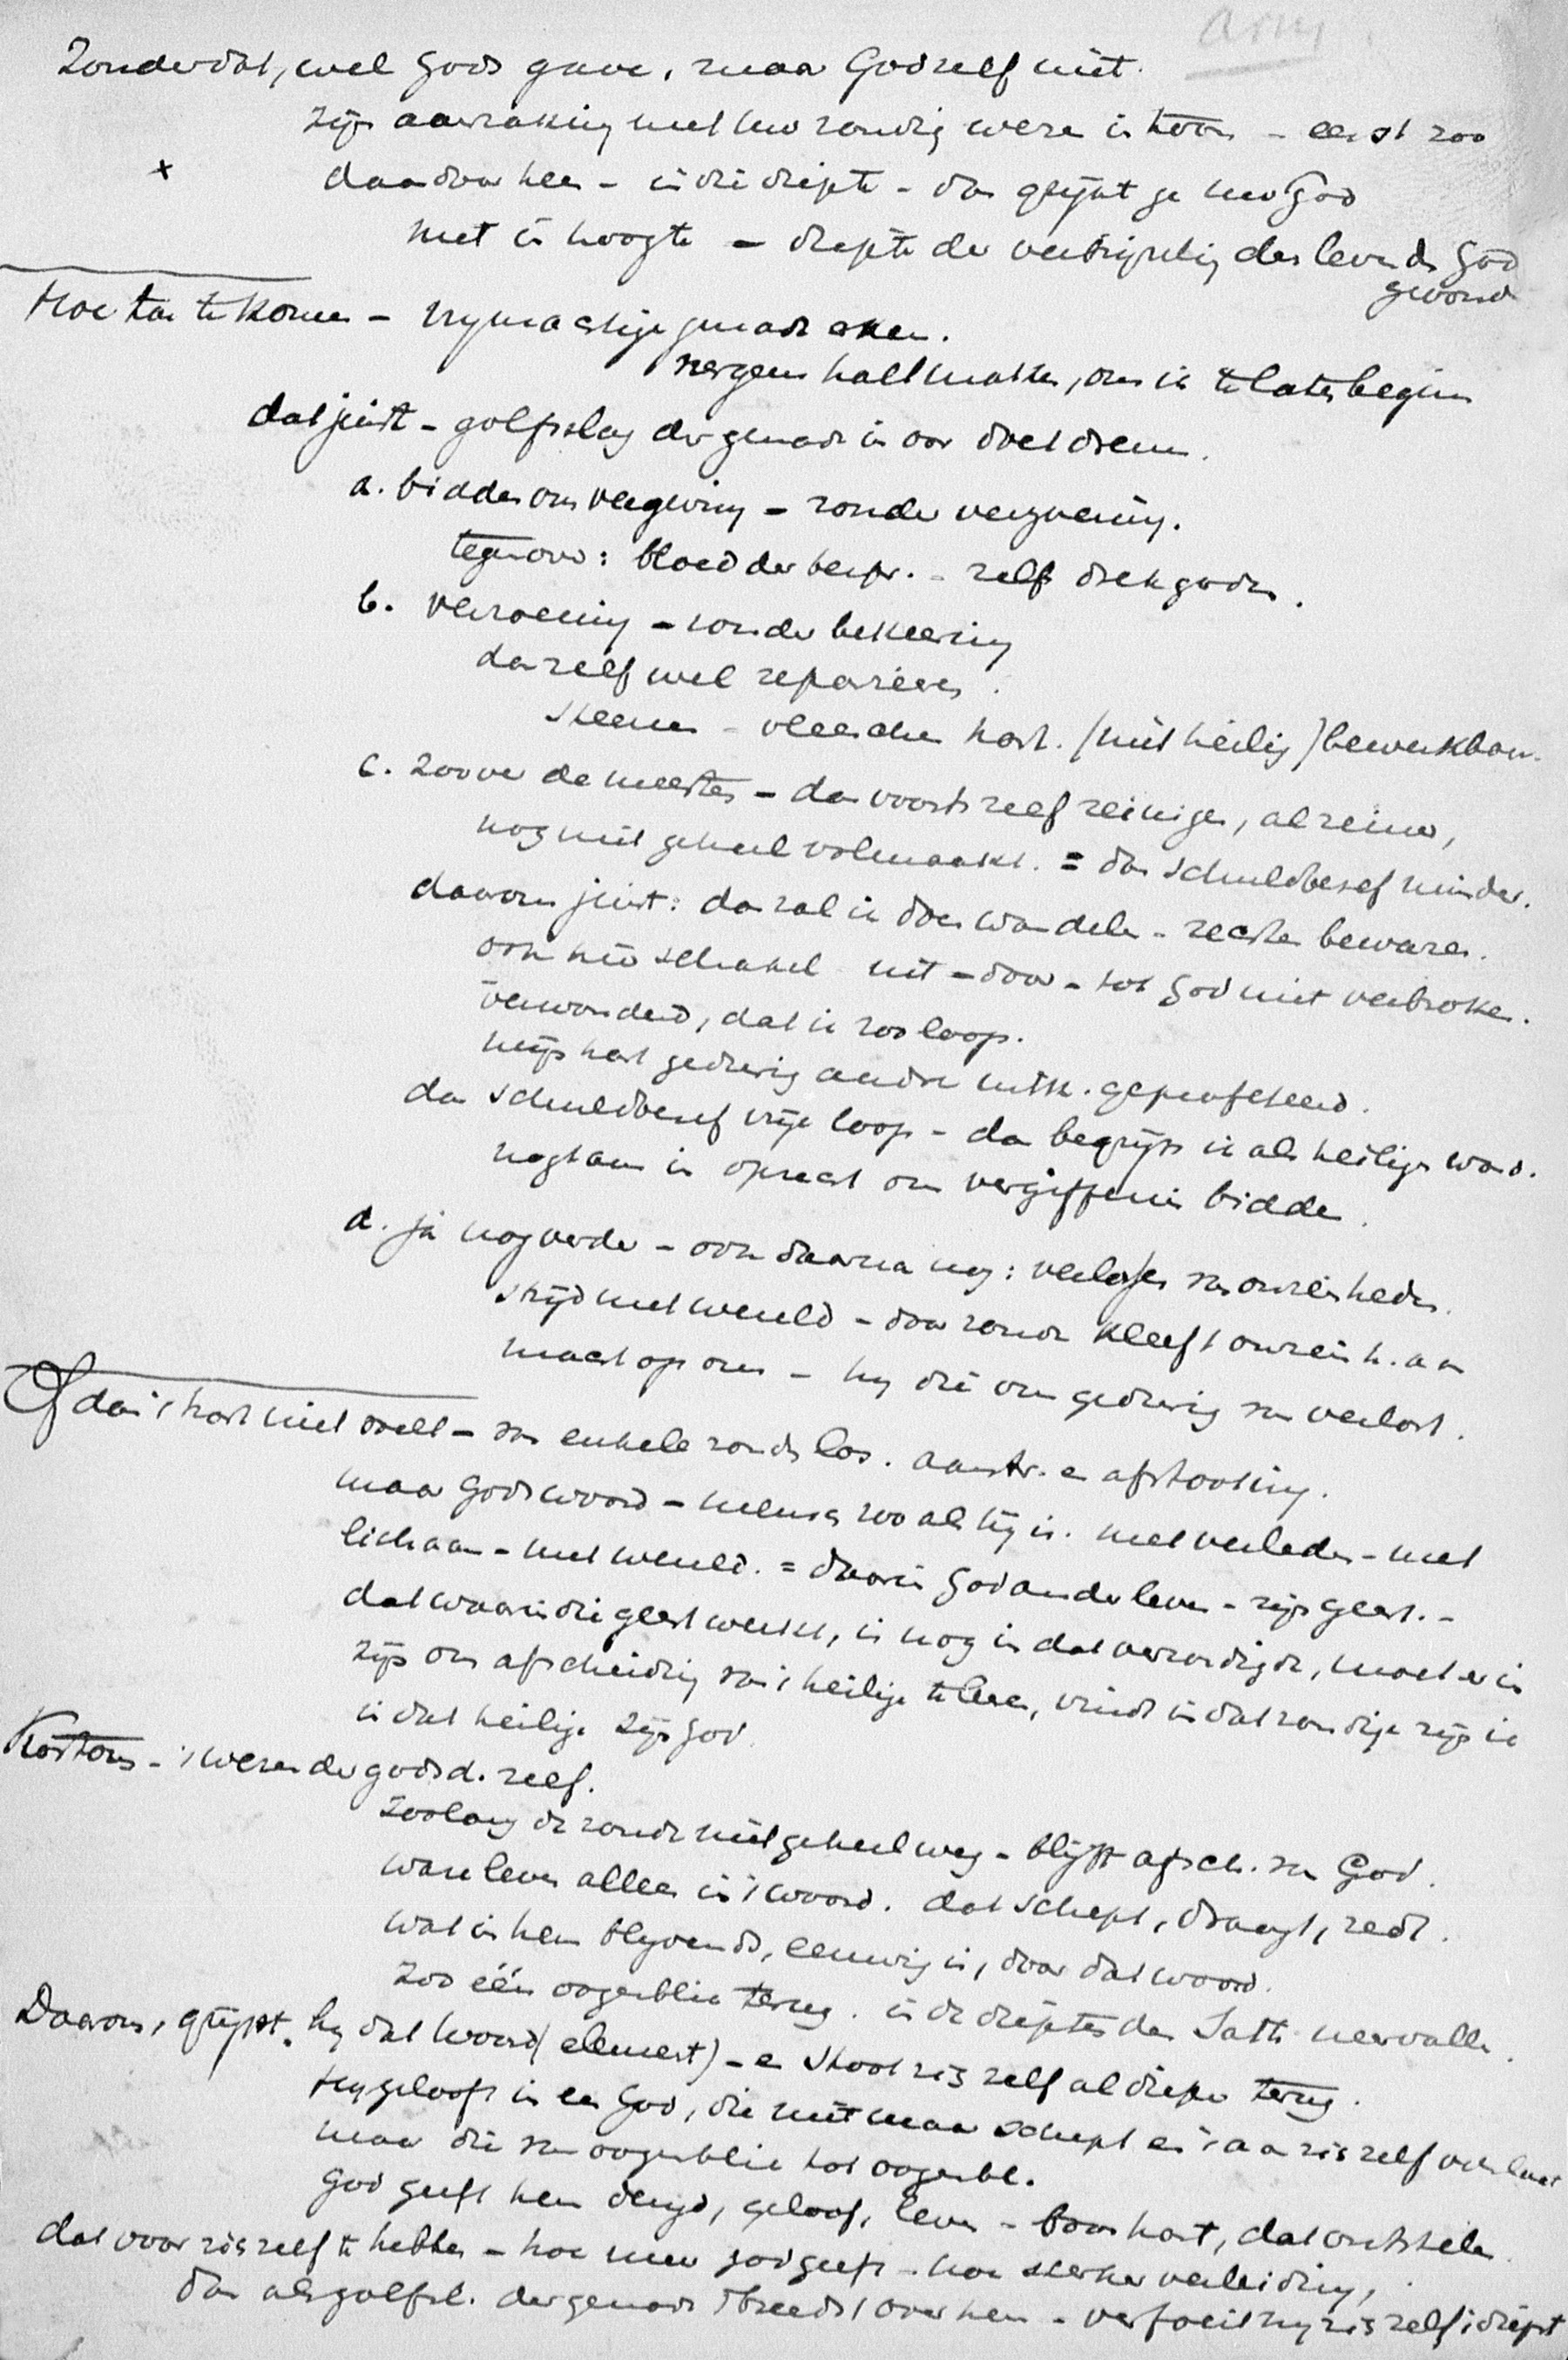 Zonder dat, wel Gods gave, maar God zelf niet.
zijn aanraking met uw zondig weze is toon - eerst zoo
x daardoor heen - in die diepte - dan grijpt ge uw God
niet in hoogte - diepte der verbrijzeling des levends God
gewond
Hoe tot te komen - vrymachtige genade
nergens halt maken, om in te laten beginn
dat juist - golfslag der genade in oor doet
a. bidden om vergeving - zonder verzoening.
tegenover: bloed der bespr. - zelfs drekgoden.
b. verzoening - zonder bekeering
dan zelf wel repareeren.
steenen - vleeschen hart. (niet heilig) bewerkbaar.
c. zoover de meesten - dan voorts zelf reinigen, al reiner,
nog niet geheel volmaakt. = dan schuldbesef minder.
daarom juist: dan zal ik doen wandelen - rechten bewaren.
ook nu schakel uit - door - tot God niet verbroken.
verwonderd, dat ik zoo loop.
mijn hart gedurig andre geprofeteerd.
dan schuldbesef vrije loop - dan begrijp ik als heilige word.
nogtans in oprecht om vergiffenis bidde.
d. ja nog verder - ook daarna nog: verlossen van onreinheden.
strijd met wereld - door zonde kleeft onreinh. aan
macht op ons - hy die ons gedurig van verlost.
Of dan 't hart niet - van enkele zonde los. aantr. en afstooting.
maar Gods woord - mensch zooals hij is. met verleden - met
lichaam - met wereld. = daarin God ander leven - zijn geest. -
dat waarin die geest werkt, is nog in dat verzondigde, moet er in
zijn om afscheiding van 't heilige te leeren, vindt in dat zondige zijn ik
in dat heilige zijn God.
Kortom - 't wezen der godsd. zelf.
Zoolang de zonde niet geheel weg - blijft afsch. van God.
ware leven alleen in 't woord. dat schept, draagt, redt.
wat in hem blyvends, eeuwig is, door dat woord.
Zoo één oogenblik terug. in de diepten des Sat. neervallen.
Daarom, grijpt hy dat woord (element) - en stoot zich zelf al dieper terug.
Hy gelooft in een God, die niet maar schept en 't aan zich zelf overlaat
maar die van oogenblik tot oogenbl.
God geeft hem deugd, geloof, leven - boos hart, dat ontstelen
dat voor zich zelf te hebben - hoe meer God geeft - hoe sterker verleiding,
dan als golfsl. der genade breedst over hem - verfoeit hy zich zelf 't diepst